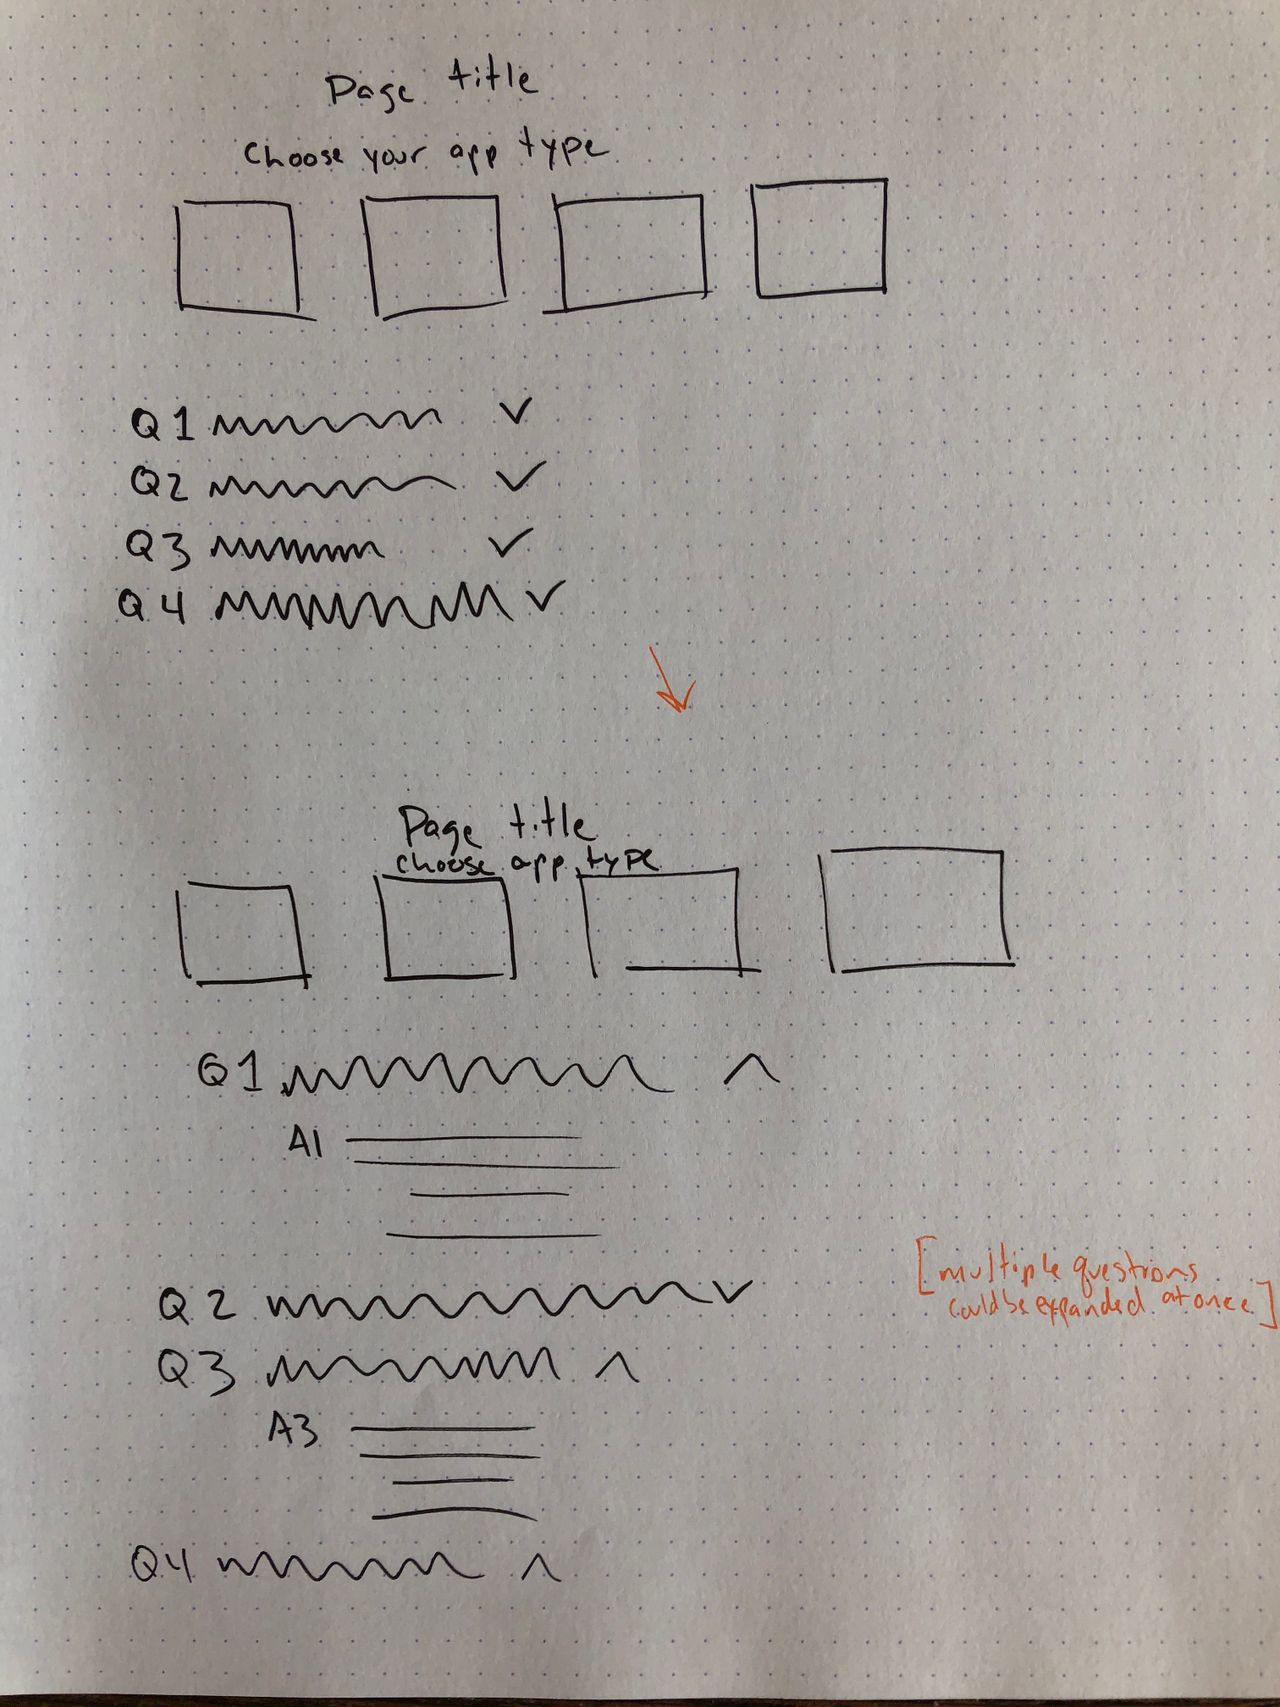 Page title
Choose your app type
Q1
Q2
Q3
Q4
Page title
choose app type
Q1
A1
Q2
[multiple questions
could be expanded at once]
Q3
A3
Q4